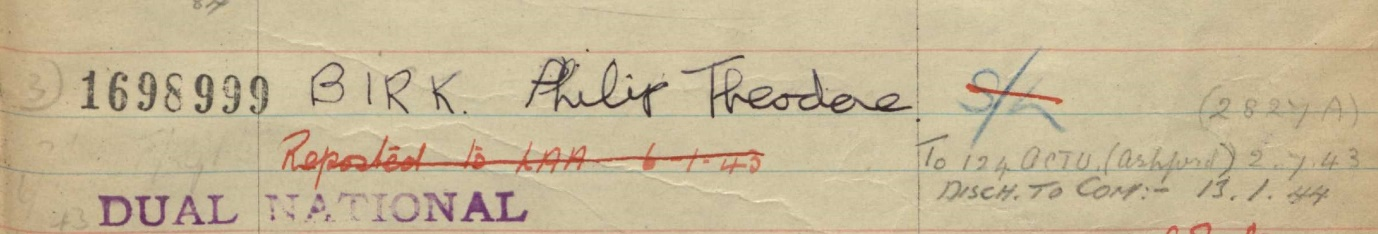 (3) 1698999 BIRK. Philip Theodore. S/L (2827A)
Reposted to LAA 6-1-43 To 124 OCTU. (Ashford) 2.7.43
DISCH. TO COM:- 13.1.44
DUAL NATIONAL